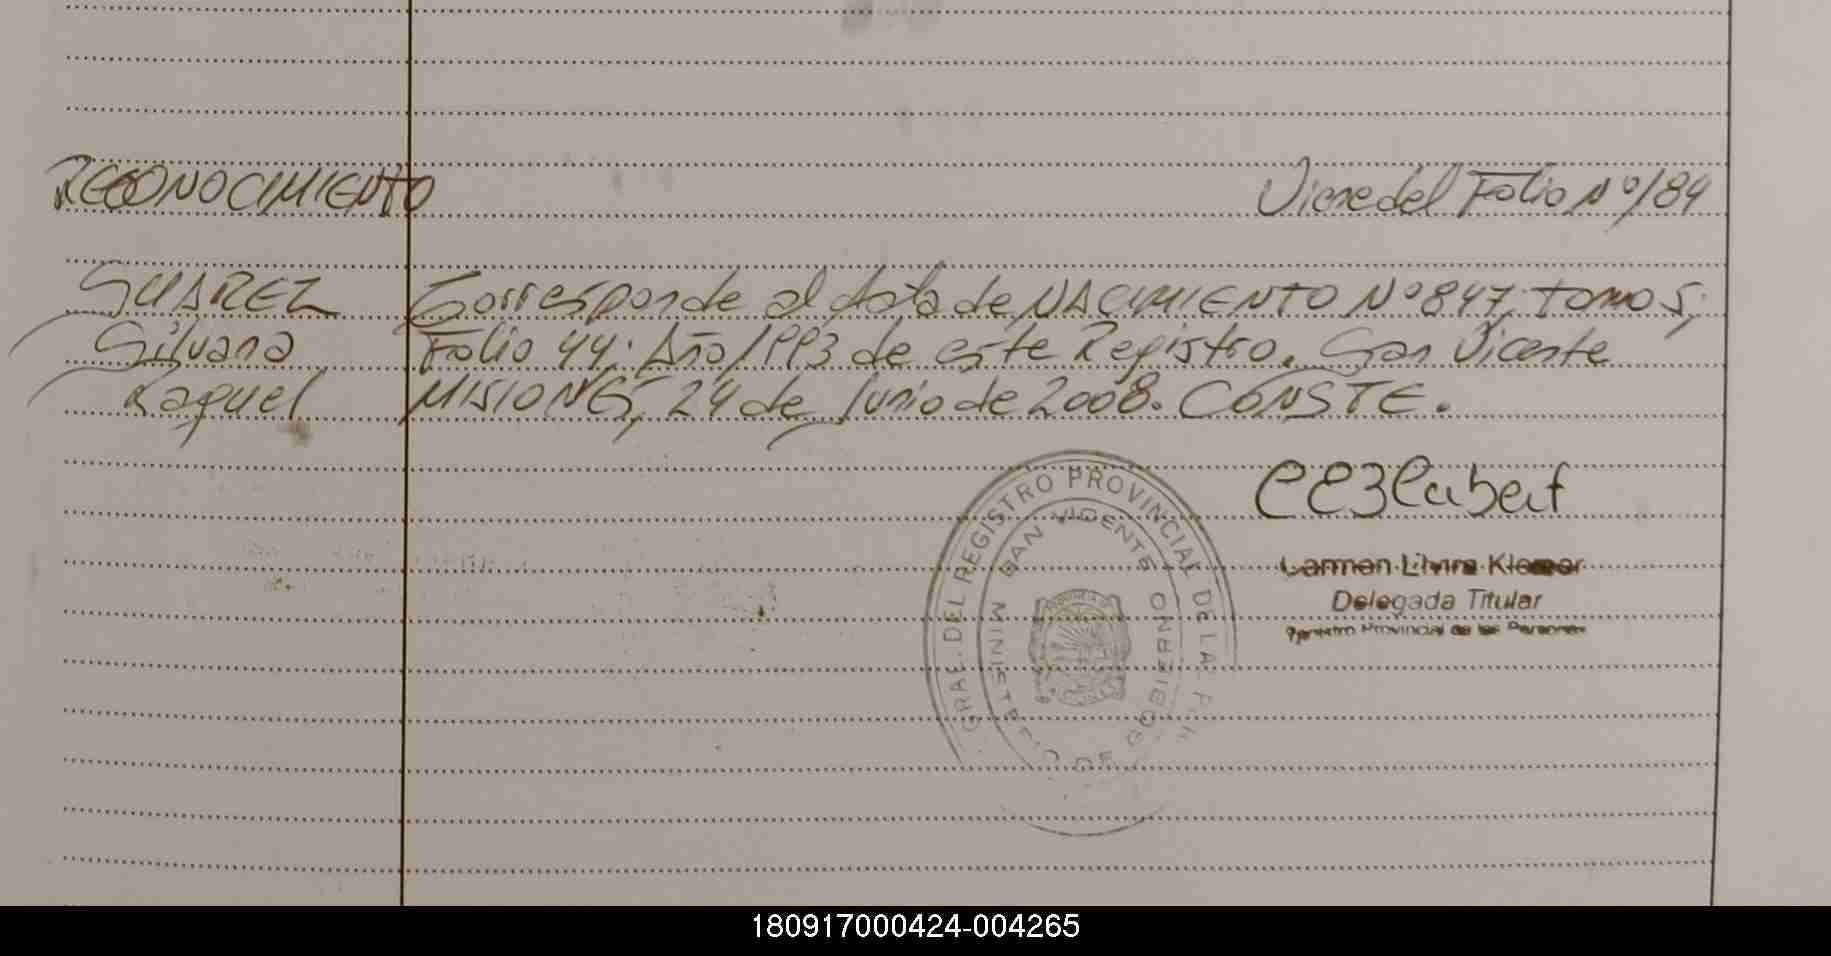 RECONOCIMIENTO
Viene del Folio Nº 184
SUAREZ
Silvana
Raquel
Corresponde al Acta de NACIMIENTO Nº 847, tomo 5,
Folio 44. Año 1993 de este Registro. San Vicente
MISIONES, 24 de Junio de 2008. CONSTE.
GRAL. DEL REGISTRO PROVINCIAL DE LA
SAN VICENTE
MINISTERIO DE GOBIERNO
Carmen
Delegada Titular
Registro Provincial de las Personas
180917000424-004265